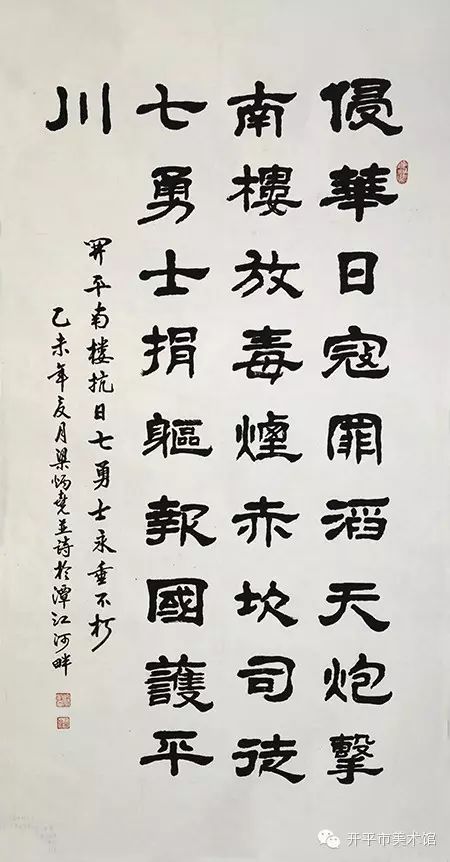 侵華日寇罪滔天炮擊
南樓放毒煙赤坎司徒
七勇士捐軀報國護平
川
開平南楼抗日七勇士永垂不朽
乙未年夏月梁炳堯並詩於潭江河畔
开平市美术馆